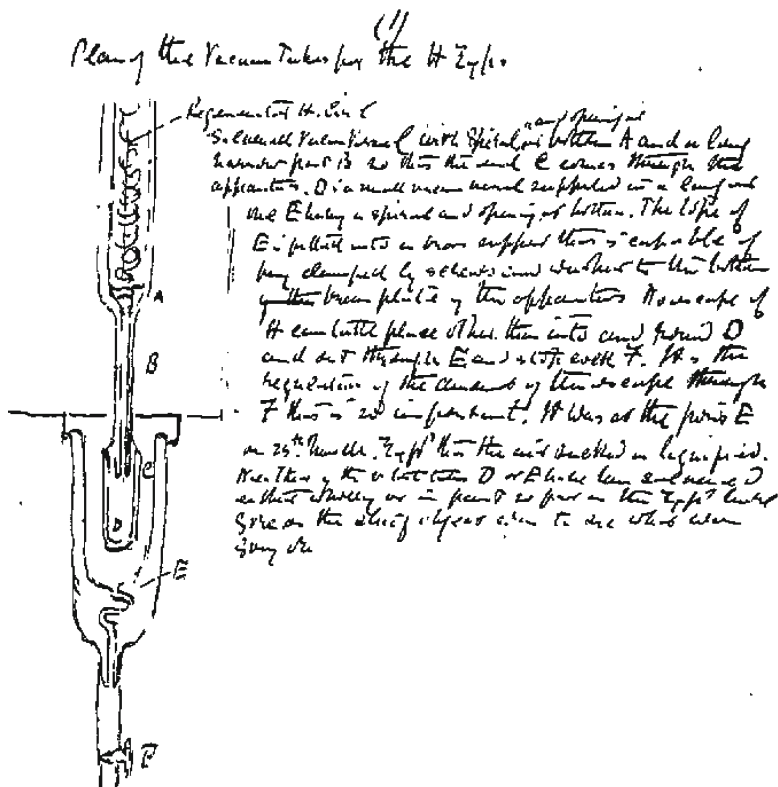 (1)
Plan of the Vacuum Tubes for the H Expt.
Regenerator H. Coil
Silvered Vacuum Vessel with Spiral and opening at bottom A and a long
narrow part B so that the end C comes through the
apparatus. D is a small vacuum vessel supported in a long
one E having a spiral and opening at bottom. The top of
E is fitted into a brass support that is capable of
being clamped by screws and washer to the bottom
brass plate of the apparatus. No escape of
H can take place other than into and round D
and out through E and stop cock F. It is the
regulation of the amount of this escape through
F that is so important. It was at the point E
on 25th March Expt that the air sucked in liquified.
Neither of the tubes D or E have been silvered
either wholly or in part so far as the Expts have
gone as the chief object was to see what was
going on
A
B
C
D
E
F